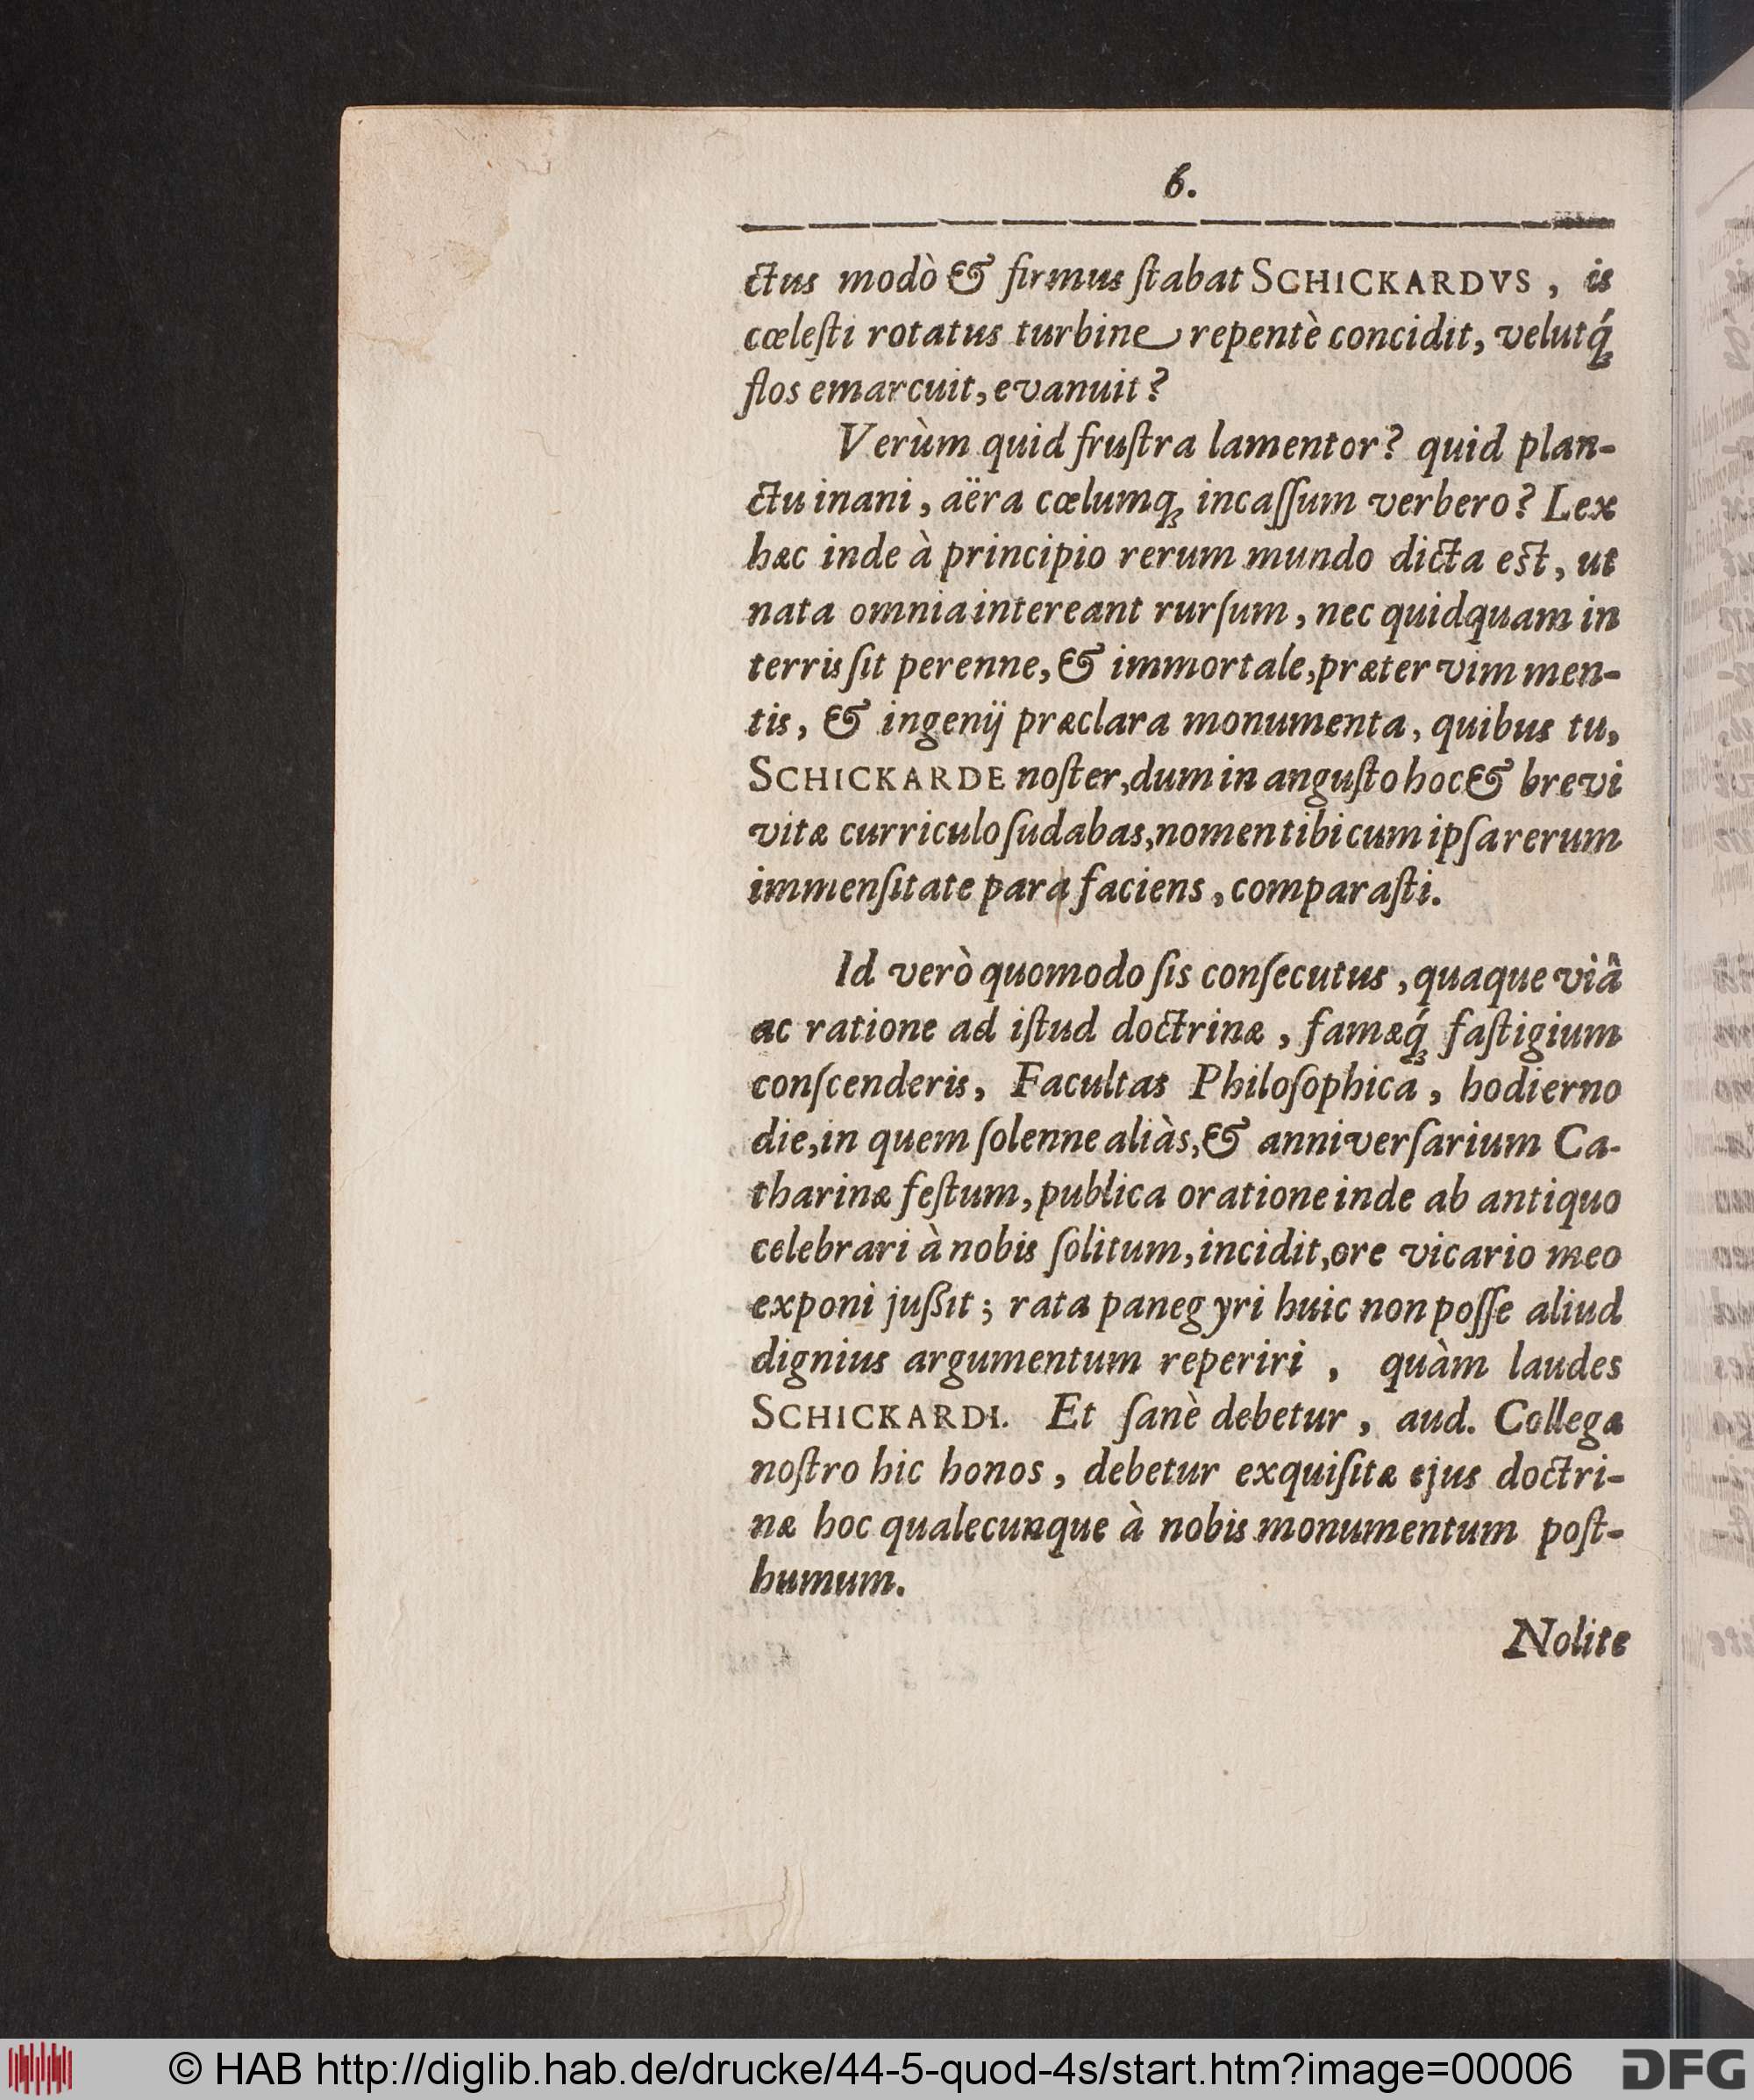 6.
ctus modò & firmus ſtabat SCHICKARDVS, is
cœleſti rotatus turbine repentè concidit, velutq́ꝫ
flos emarcuit, evanuit?
Verùm quid fruſtra lamentor? quid plan-
ctu inani, aëra cœlumqꝫ incaſſum verbero? Lex
hæc inde à principio rerum mundo dicta eſt, ut
nata omnia intereant rurſum, nec quidquam in
terris ſit perenne, & immortale, præter vim men-
tis, & ingenij præclara monumenta, quibus tu,
SCHICKARDE noſter, dum in anguſto hoc & brevi
vitæ curriculo ſudabas, nomen tibi cum ipſa rerum
immenſitate para faciens, comparaſti.
Id verò quomodo ſis conſecutus, quaque viâ
ac ratione ad iſtud doctrinæ, famæq́ꝫ faſtigium
conſcenderis, Facultas Philoſophica, hodierno
die, in quem ſolenne aliàs, & anniverſarium Ca-
tharinæ feſtum, publica oratione inde ab antiquo
celebrari à nobis ſolitum, incidit, ore vicario meo
exponi jußit; rata panegyri huic non poſſe aliud
dignius argumentum reperiri, quàm laudes
SCHICKARDI. Et ſanè debetur, aud. Collegæ
noſtro hic honos, debetur exquiſitæ ejus doctri-
næ hoc qualecunque à nobis monumentum poſt-
humum.
Nolite
© HAB http://diglib.hab.de/drucke/44-5-quod-4s/start.htm?image=00006
DFG